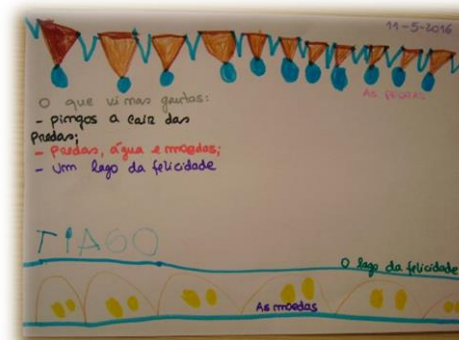 11-5-2016
AS PEDRAS
O que vi nas grutas:
- pingos a cair das
Pedras;
- Pedras, água e moedas;
- Um lago da felicidade
TIAGO
O lago da felicidade
As moedas